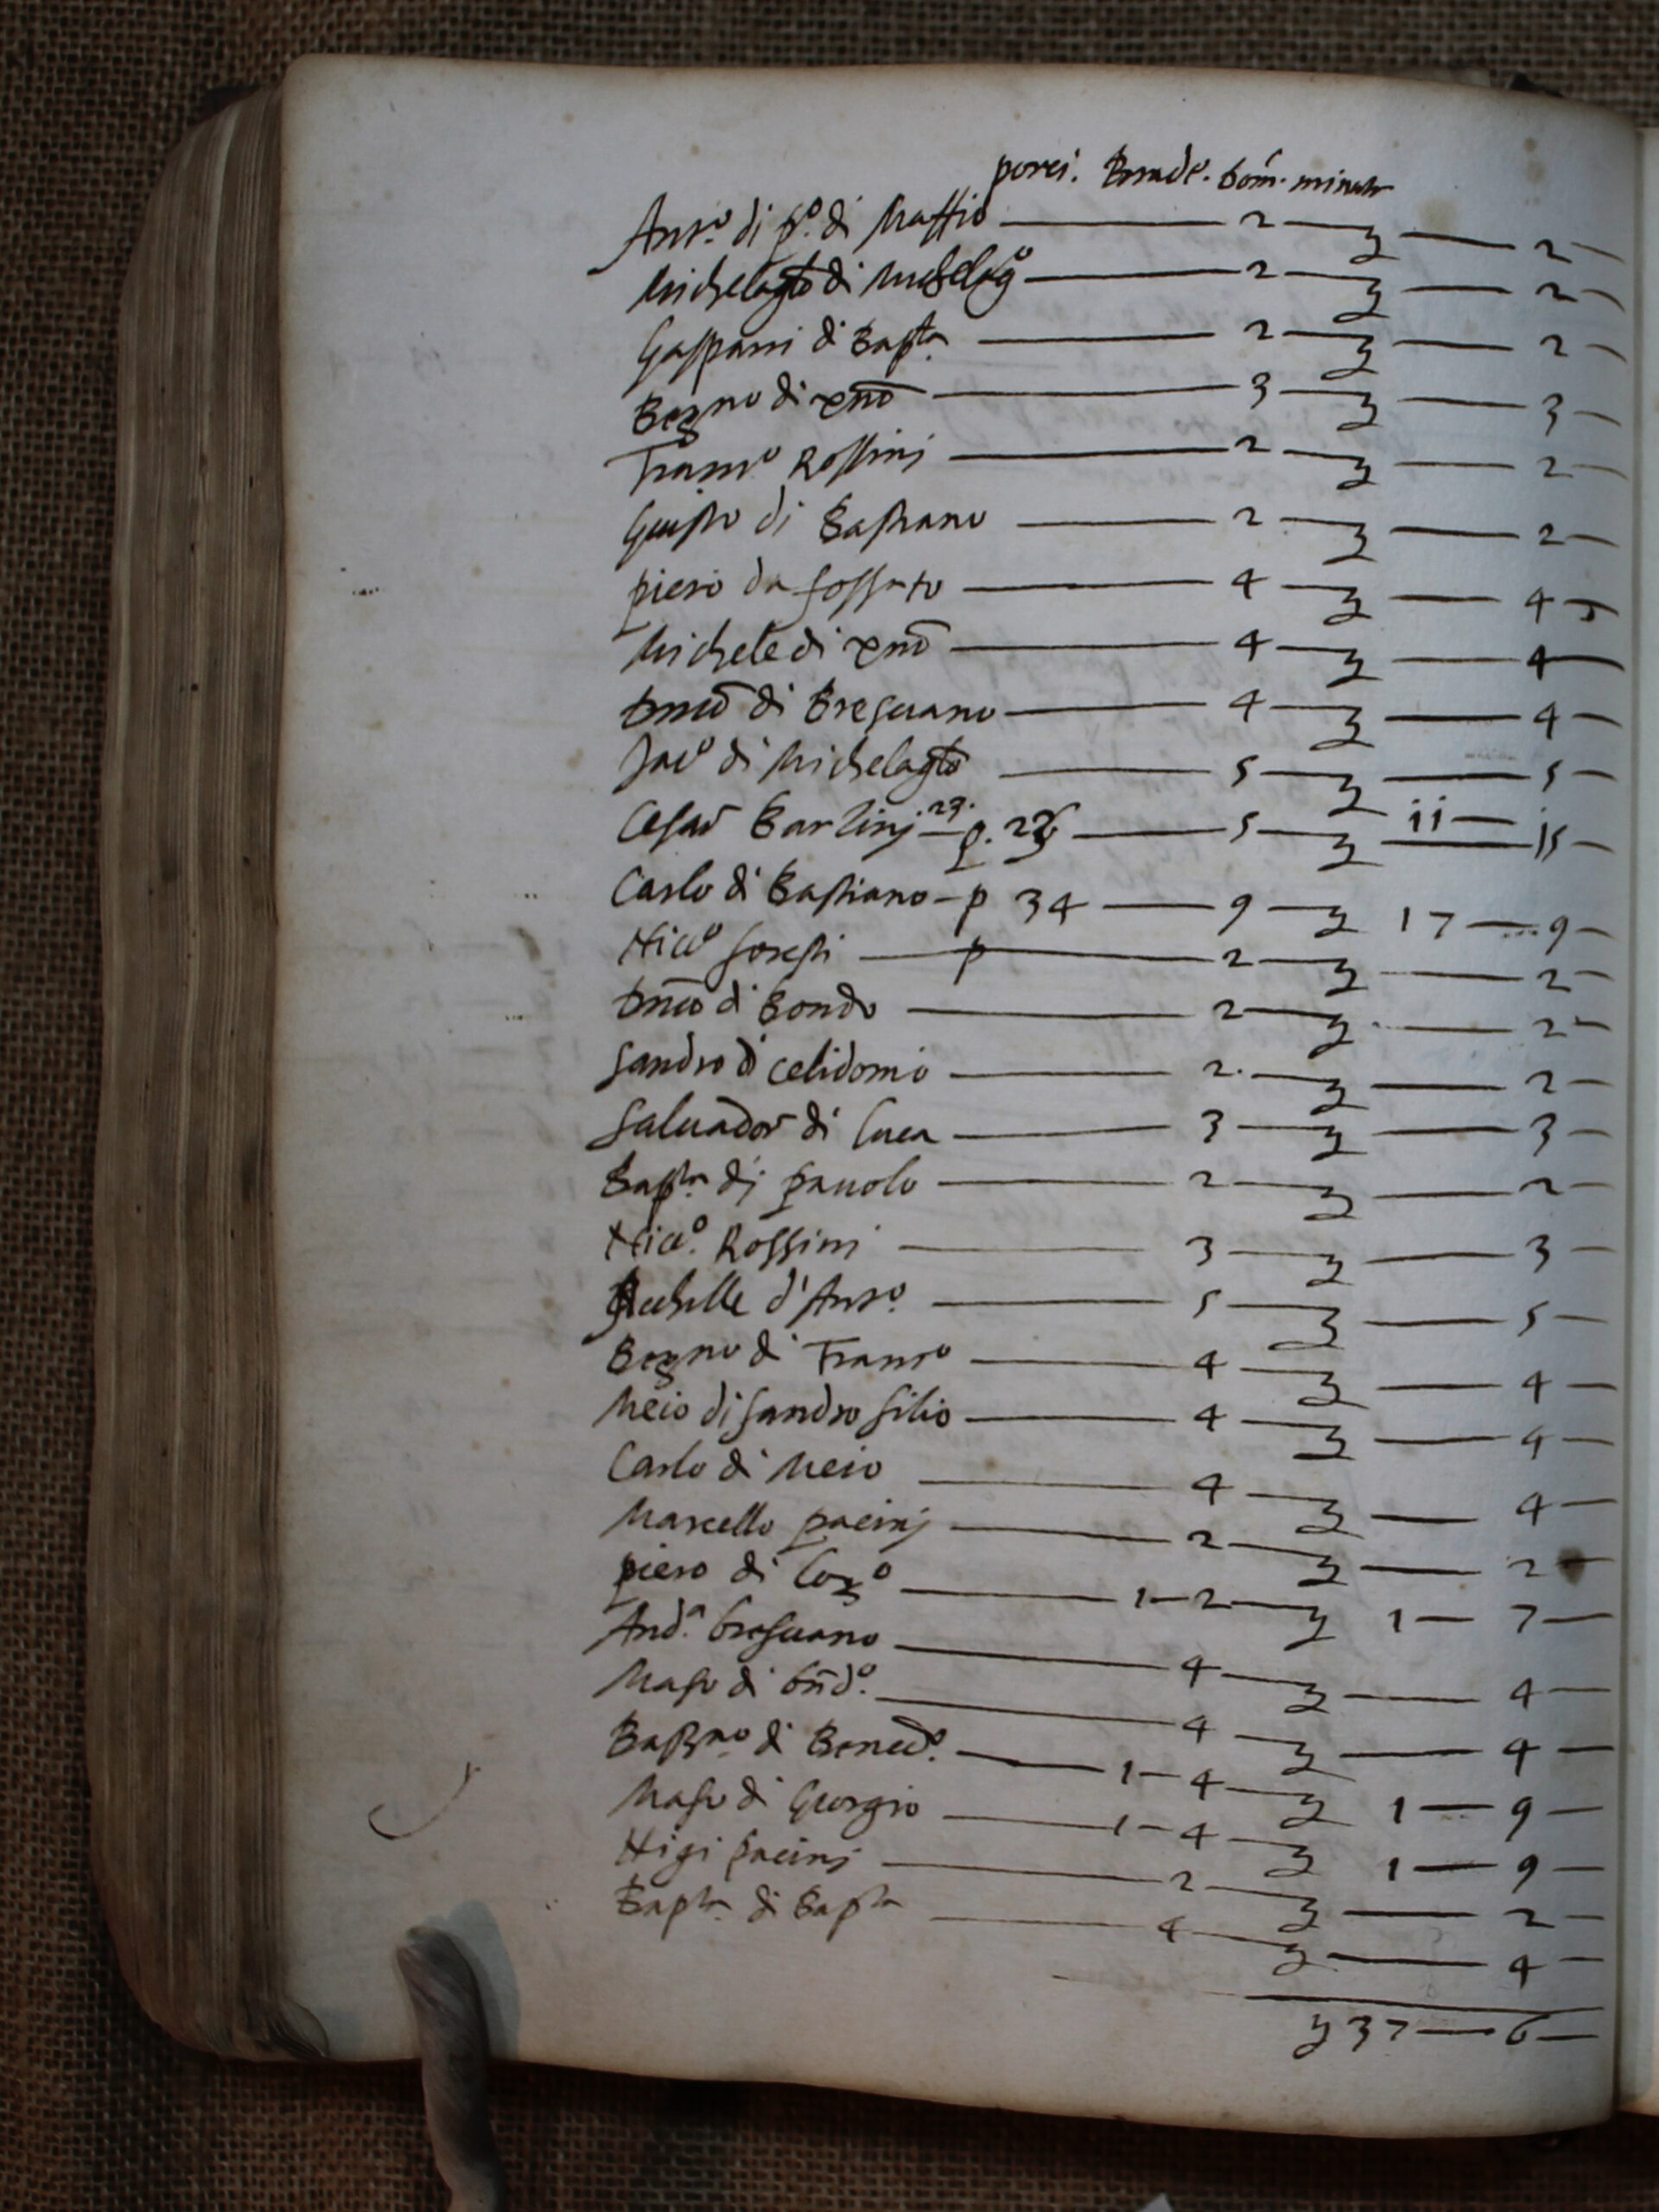 porci. Brade. bom. minut
Ant.º di p.º di Maffio — 2 — ʒ — 2 —
Michelagto di Michelagº — 2 — ʒ — 2 —
Gasparri di Bapta — 2 — ʒ — 2 —
Begno di xpno — 3 — ʒ — 3 —
Francº Rossinj — 2 — ʒ — 2 —
Giusto di Bastiano — 2 — ʒ — 2 —
piero da fossato — 4 — ʒ — 4 —
Michele di xpno — 4 — ʒ — 4 —
Dnico di Bresciano — 4 — ʒ — 4 —
Jacº di Michelagto — 5 — ʒ — 5 —
Cesar Barlinj — 23. p. — 5 — ʒ ii — 15 —
Carlo di Bastiano — p 34 — 9 — ʒ 17 — 9 —
Niccº foresti — p — 2 — ʒ — 2 —
Dnico di Bondo — 2 — ʒ — 2 —
Sandro di Celidonio — 2. — ʒ — 2 —
Saluador di Luca — 3 — ʒ — 3 —
Bapta dj pauolo — 2 — ʒ — 2 —
Niccº. Rossini — 3 — ʒ — 3 —
Achille d'Antº. — 5 — ʒ — 5 —
Begno di Francº — 4 — ʒ — 4 —
Meio di Sandro Silio — 4 — ʒ — 4 —
Carlo di Meio — 4 — ʒ — 4 —
Marcello pacinj — 2 — ʒ — 2
piero di Lorº — 1 — 2 — ʒ 1 — 7 —
Andª. bresciano — 4 — ʒ — 4 —
Maso di bndº. — 4 — ʒ — 4 —
Bastnº di Benedº. — 1 — 4 — ʒ 1 — 9 —
Maso di Giorgio — 1 — 4 — ʒ 1 — 9 —
Nigi pacinj — 2 — ʒ — 2 —
Bapta di Bapta — 4 — ʒ — 4 —
ʒ 37 — 6 —